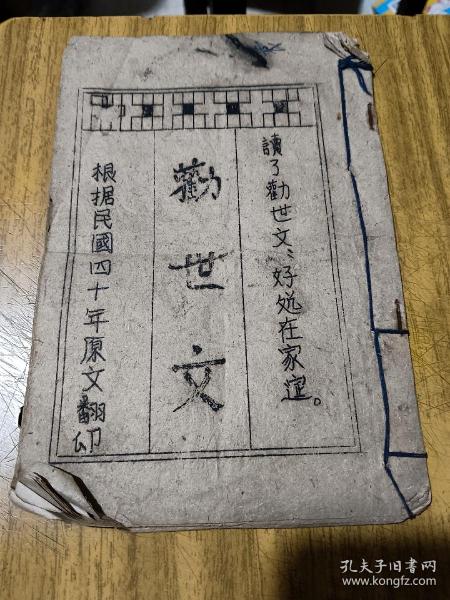 讀了勸世文、好処在家庭。
勸世文
根据民國四十年原文翻印
孔夫子旧书网
www.kongfz.com